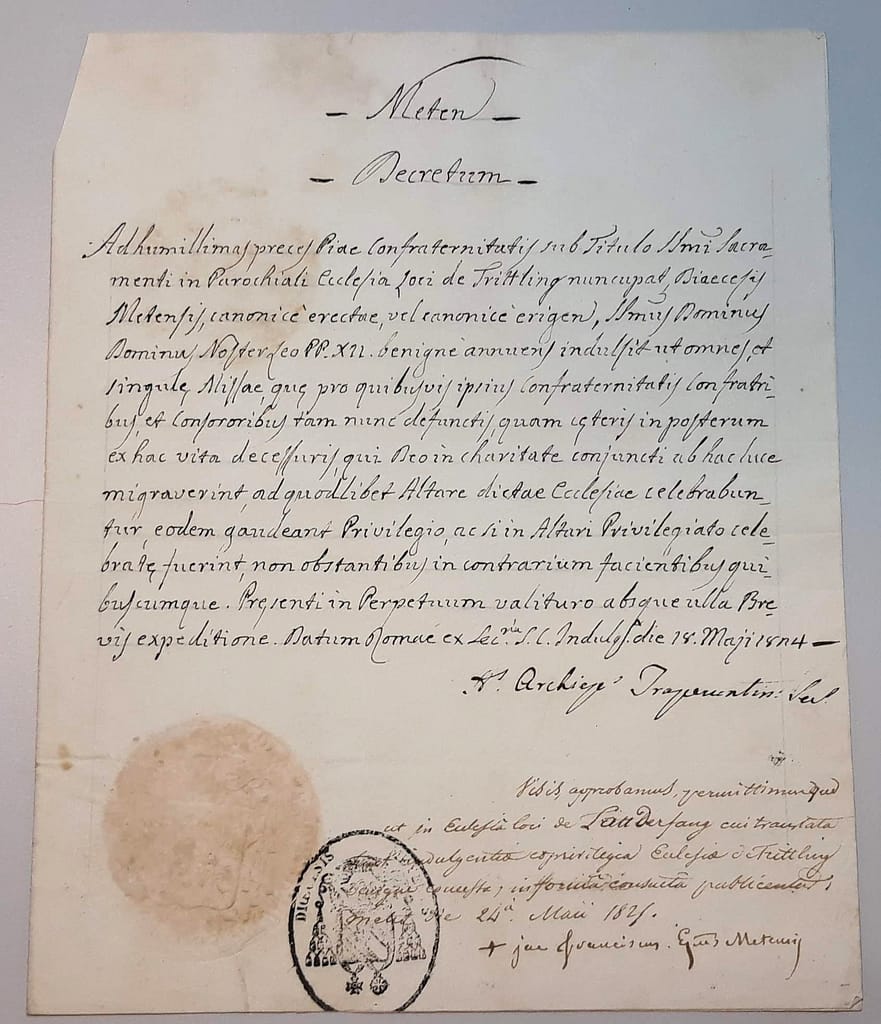 – Meten –
– Decretum –
Ad humillimas preces Piae Confraternitatis sub Titulo SSmi Sacra-
menti in Parochiali Ecclesia Loci de Trittling nuncupat, Diaecesis
Metensis, canonicè erectae, vel canonicè erigen, SSmus Dominus
Dominus Noster Leo PP. XII. benignè annuens indulsit ut omnes, et
singulę Missae, quę pro quibusvis ipsius Confraternitatis Confratri-
bus, et Consororibus tam nunc defunctis, quam cęteris in posterum
ex hac vita decessuris, qui Deo in charitate conjuncti ab hac luce
migraverint, ad quodlibet Altare dictae Ecclesiae celebrabun-
tur, eodem gaudeant Privilegio, ac si in Altari Privilegiato cele-
bratę fuerint, non obstantibus in contrarium facientibus qui-
buscumque. Pręsenti in Perpetuum valituro absque ulla Bre-
vis expeditione. Datum Romae ex Sec.ria S. C. Indulg. die 18. Maji 1824 –
Archiep.s Trapezuntin: Sec.
Visis, approbamus, permittimusque
ut in Eclesia loci de Laudrefang cui translata
indulgentia Eclesiae de Trittling
in forma consueta publicentur,
die 24a. Maii 1825.
+ jac franciscus. Eps Metensis
DIŒCESIS